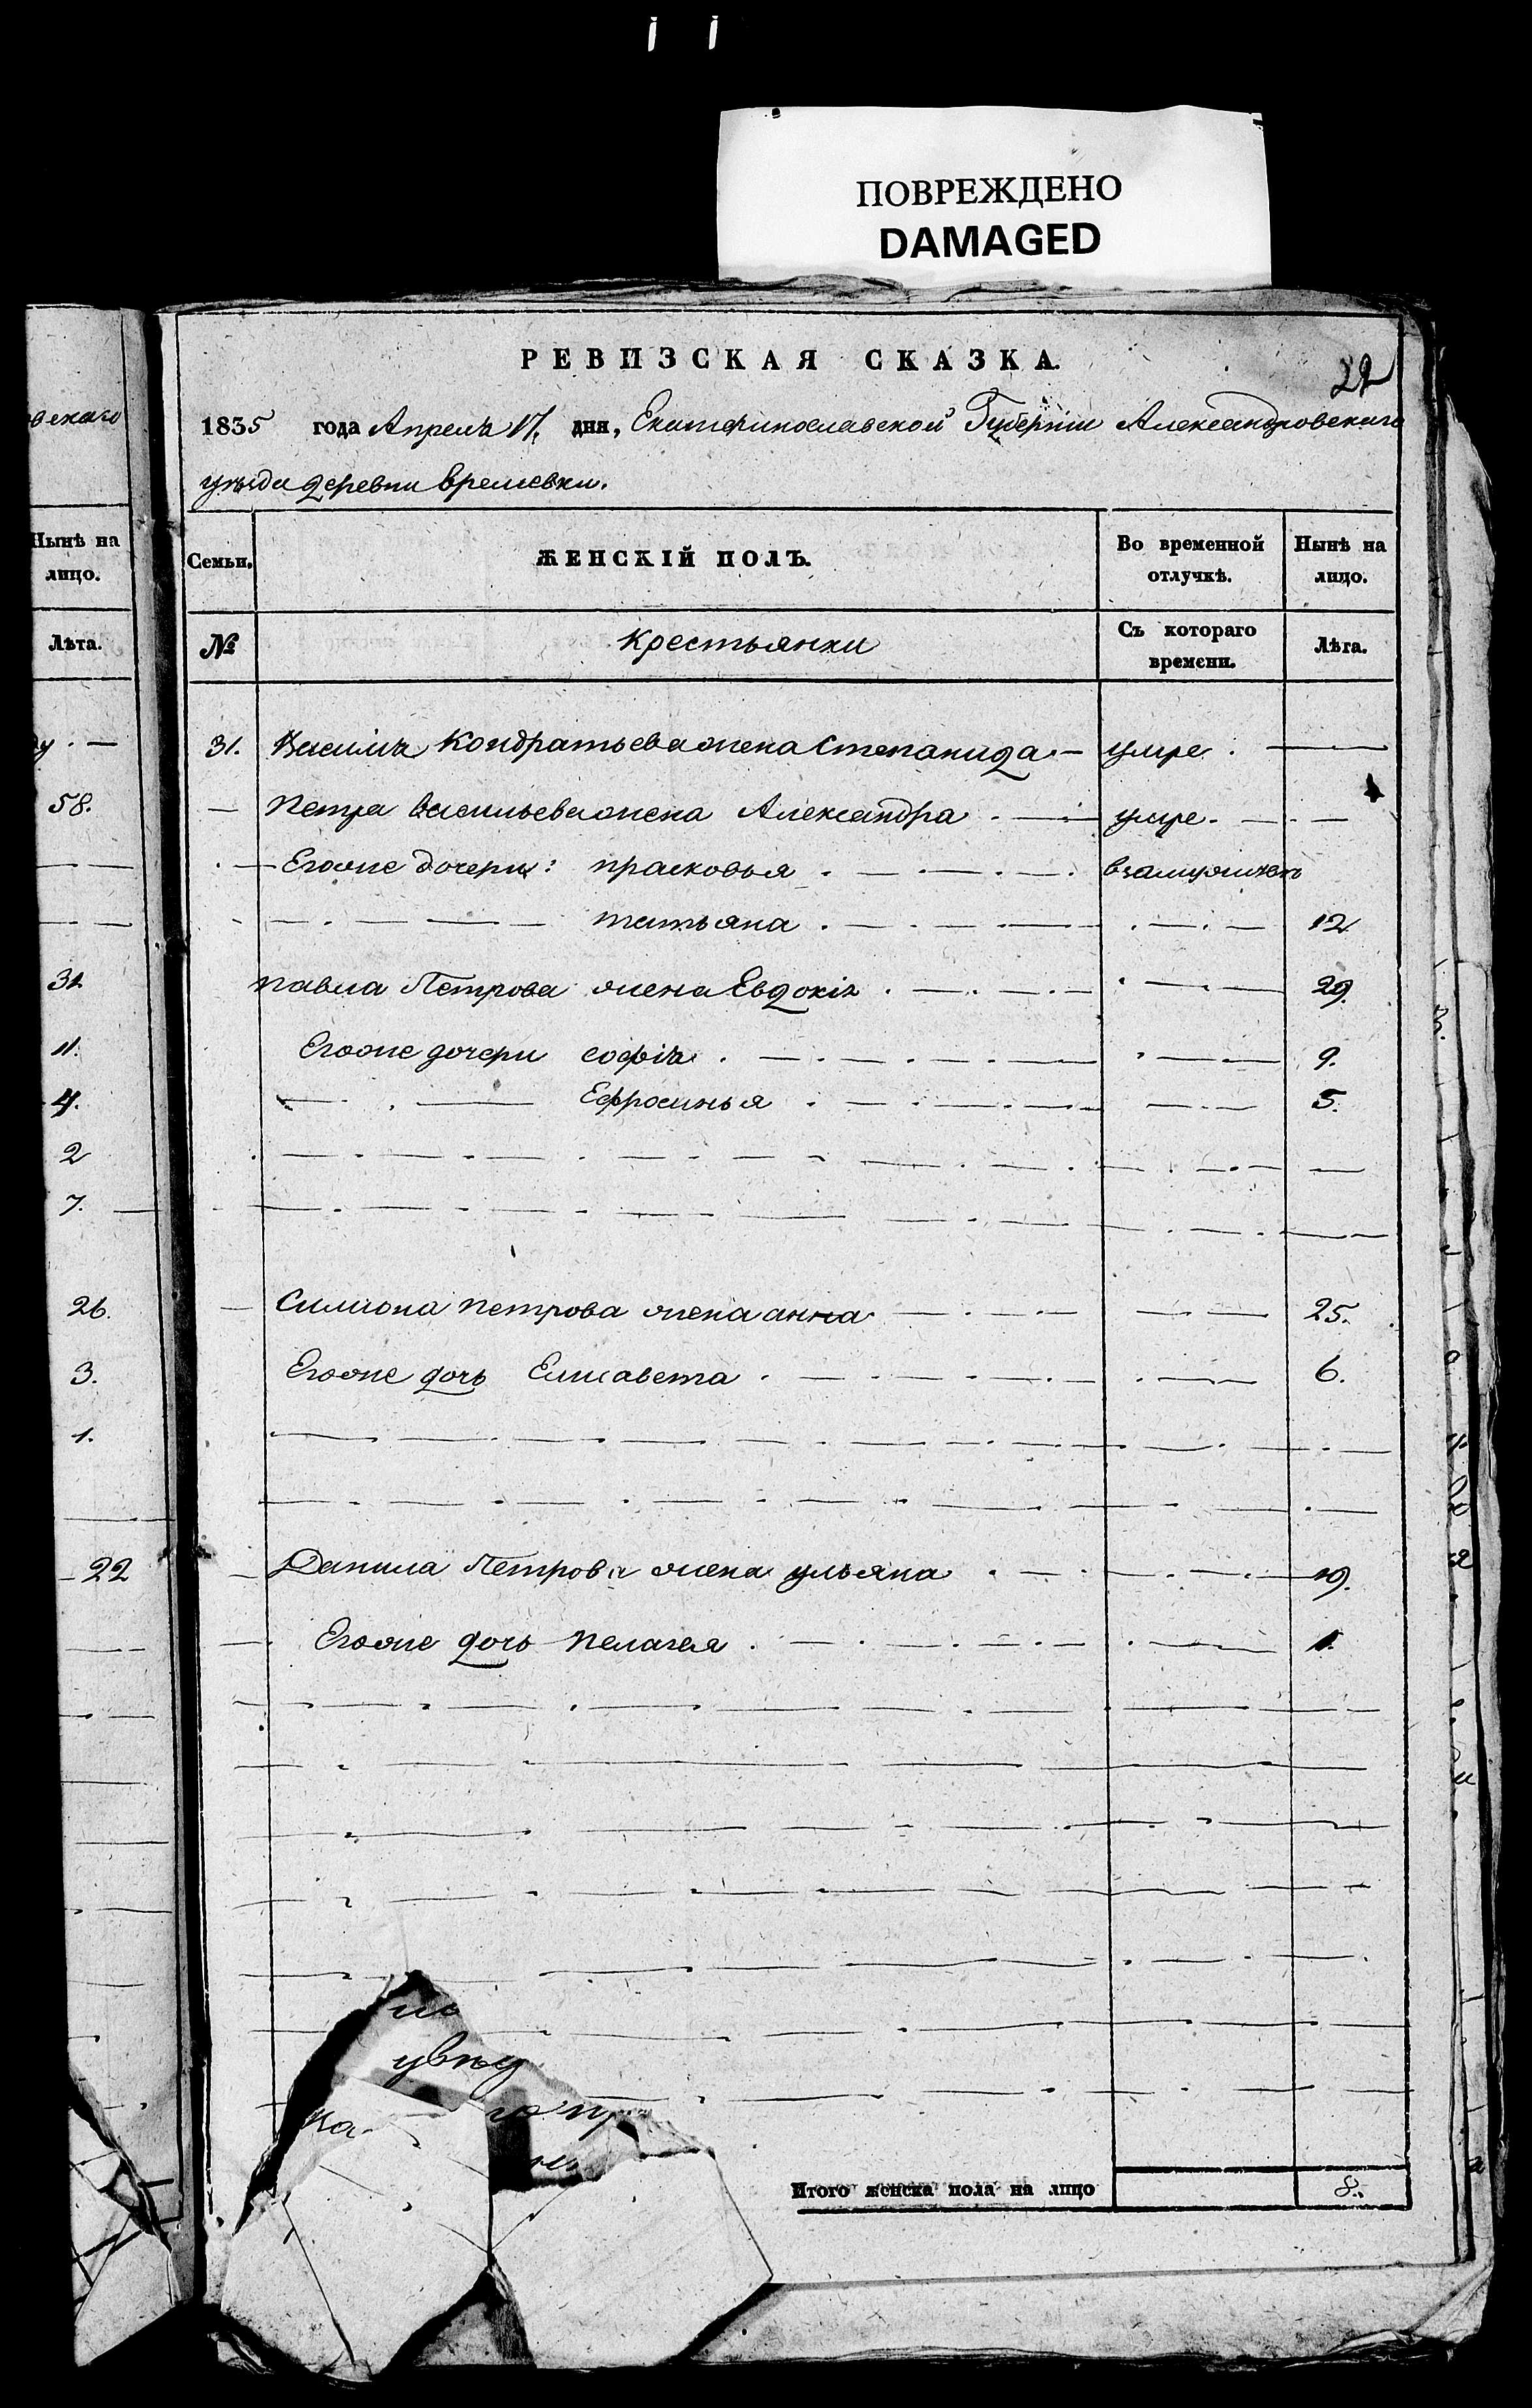 ПОВРЕЖДЕНО
DAMAGED
РЕВИЗСКАЯ СКАЗКА.
22
1835 года Апреля 17. дня, Екатеринославской Губернии Александровскаго
уѣзда деревни Времевки.
Семьи. ЖЕНСКІЙ ПОЛЪ. Во временной отлучкѣ. Нынѣ на лицо.
№ Крестьянки Съ котораго времени. Лѣта.
31. Василия Кондратьева жена Степанида — умре
Петра Васильева жена Александра умре.
Егоже дочери: прасковья взамужистве
татьяна 12
павла Петрова жена Евдокія 29.
Егоже дочери софія 9.
Ефросинья 5.
Симиона петрова жена анна 25.
Егоже дочь Елисавета 6.
Данила Петрова жена ульяна 19.
Егоже дочь пелагея 1.
Итого женска пола на лицо 8.
вскаго
Нынѣ на
лицо.
Лѣта.
58.
31
11.
4.
2
7.
26.
3.
1.
22